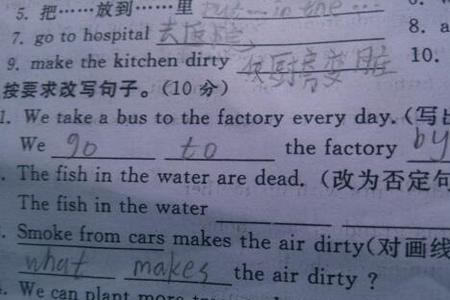 5. 把……放到……里 put…in the…
7. go to hospital 去医 8. a
9. make the kitchen dirty 使厨房变脏 10.
按要求改写句子。(10 分)
1. We take a bus to the factory every day. (写
We go to the factory by
. The fish in the water are dead. (改为否定句
The fish in the water
. Smoke from cars makes the air dirty(对画线
what makes the air dirty ?
. We can plant more